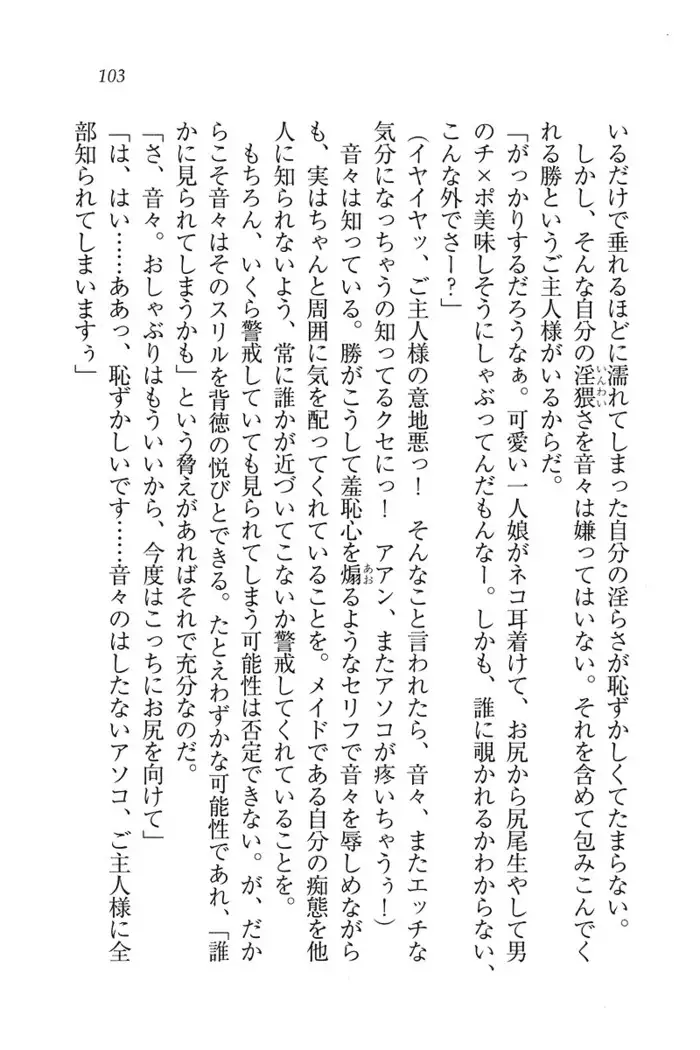 103
いるだけで垂れるほどに濡れてしまった自分の淫らさが恥ずかしくてたまらない。
しかし、そんな自分の淫猥いんわいさを音々は嫌ってはいない。それを含めて包みこんでく
れる勝というご主人様がいるからだ。
「がっかりするだろうなぁ。可愛い一人娘がネコ耳着けて、お尻から尻尾生やして男
のチ×ポ美味しそうにしゃぶってんだもんなー。しかも、誰に覗かれるかわからない、
こんな外でさー？」
（イヤイヤッ、ご主人様の意地悪っ！　そんなこと言われたら、音々、またエッチな
気分になっちゃうの知ってるクセにっ！　アアン、またアソコが疼いちゃうぅ！）
音々は知っている。勝がこうして羞恥心を煽あおるようなセリフで音々を辱しめながら
も、実はちゃんと周囲に気を配ってくれていることを。メイドである自分の痴態を他
人に知られないよう、常に誰かが近づいてこないか警戒してくれていることを。
もちろん、いくら警戒していても見られてしまう可能性は否定できない。が、だか
らこそ音々はそのスリルを背徳の悦びとできる。たとえわずかな可能性であれ、「誰
かに見られてしまうかも」という脅えがあればそれで充分なのだ。
「さ、音々。おしゃぶりはもういいから、今度はこっちにお尻を向けて」
「は、はい……ああっ、恥ずかしいです……音々のはしたないアソコ、ご主人様に全
部知られてしまいますぅ」